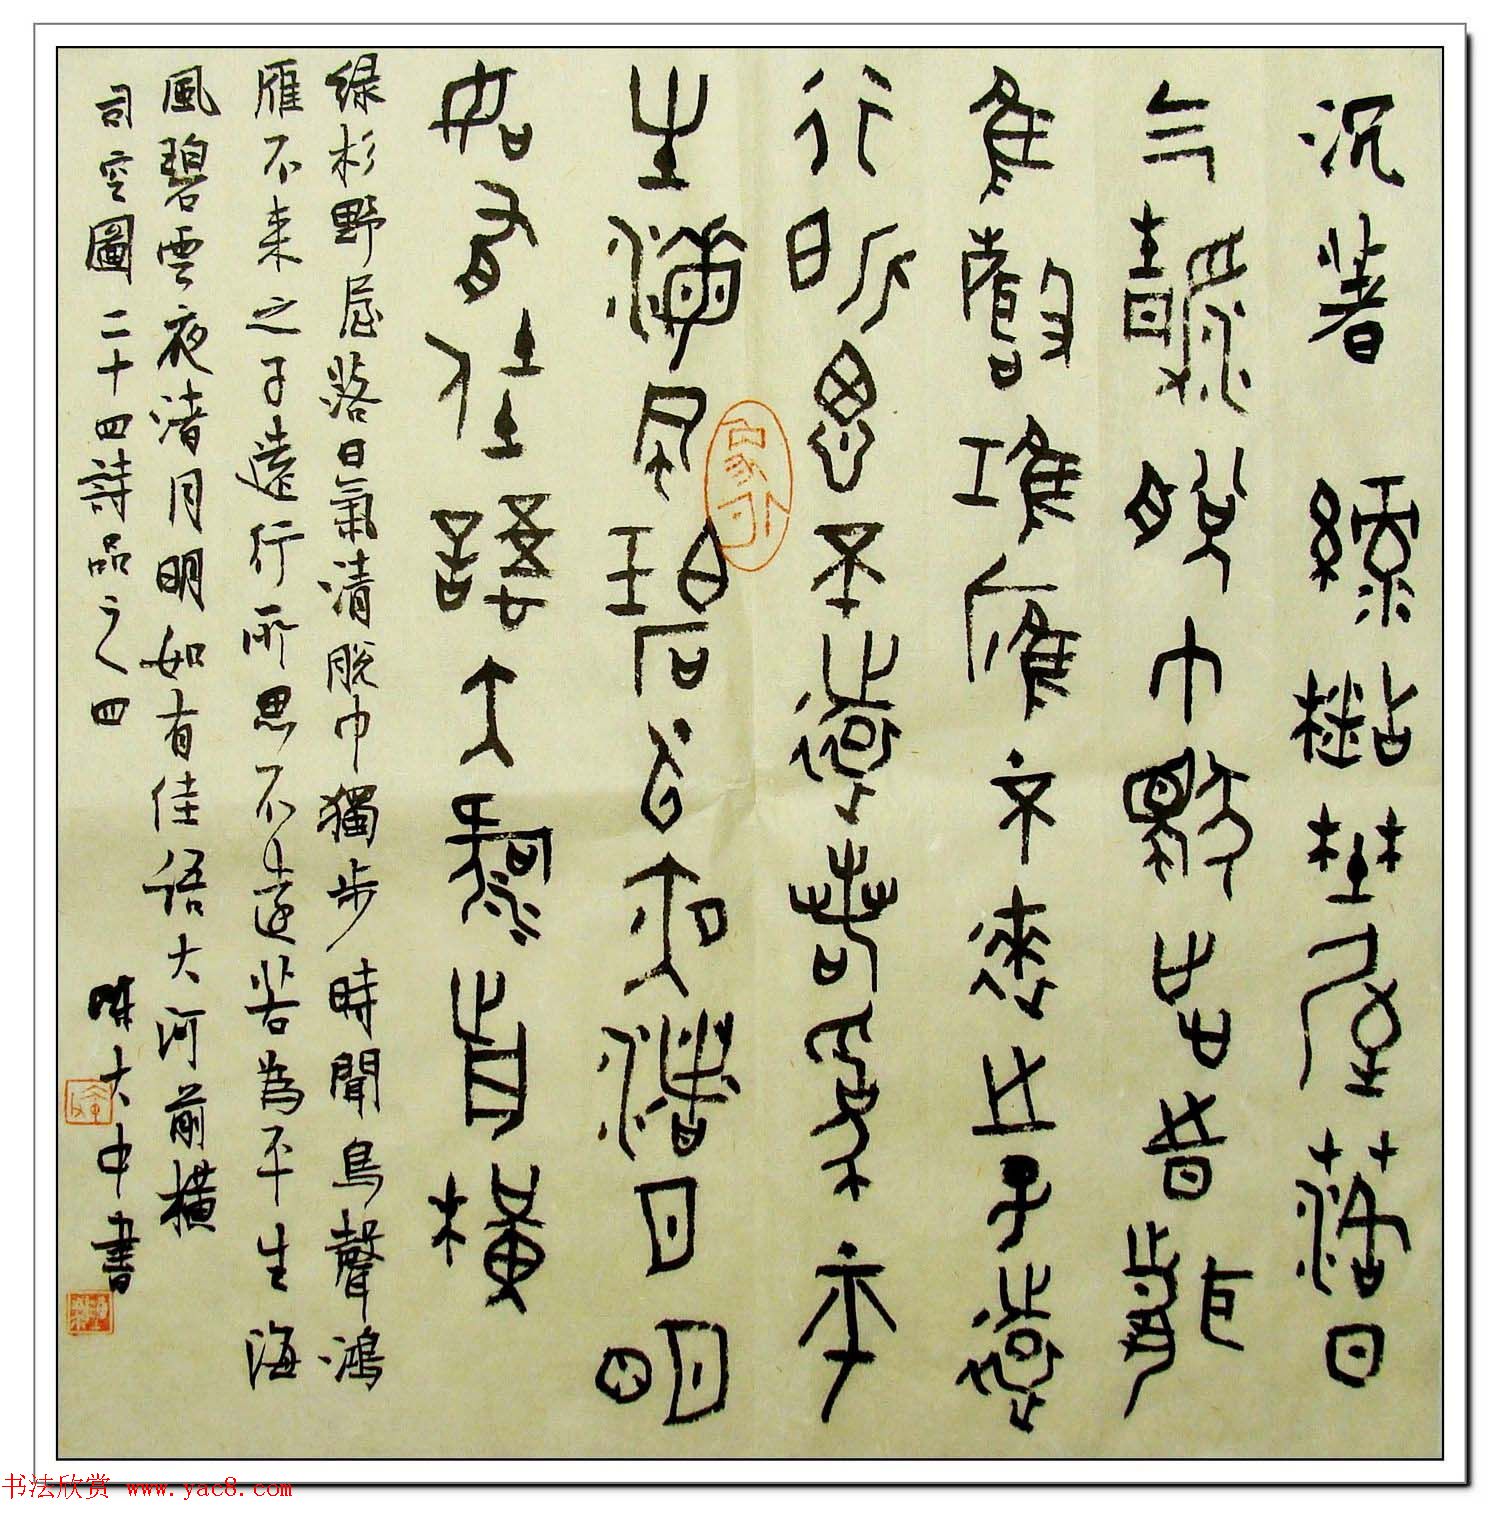 沉著 綠杉野屋落日
气清脫巾獨步時聞
鳥聲鴻雁不來之子遠
行所思不遠若為平
生海風碧雲夜渚月明
如有佳語大河前橫
緑杉野屋落日氣清脫巾獨步時聞鳥聲鴻
雁不来之子遠行所思不遠若為平生海
風碧雲夜渚月明如有佳語大河前橫
司空圖二十四詩品之四 陳大中書
书法欣赏 www.yac8.com